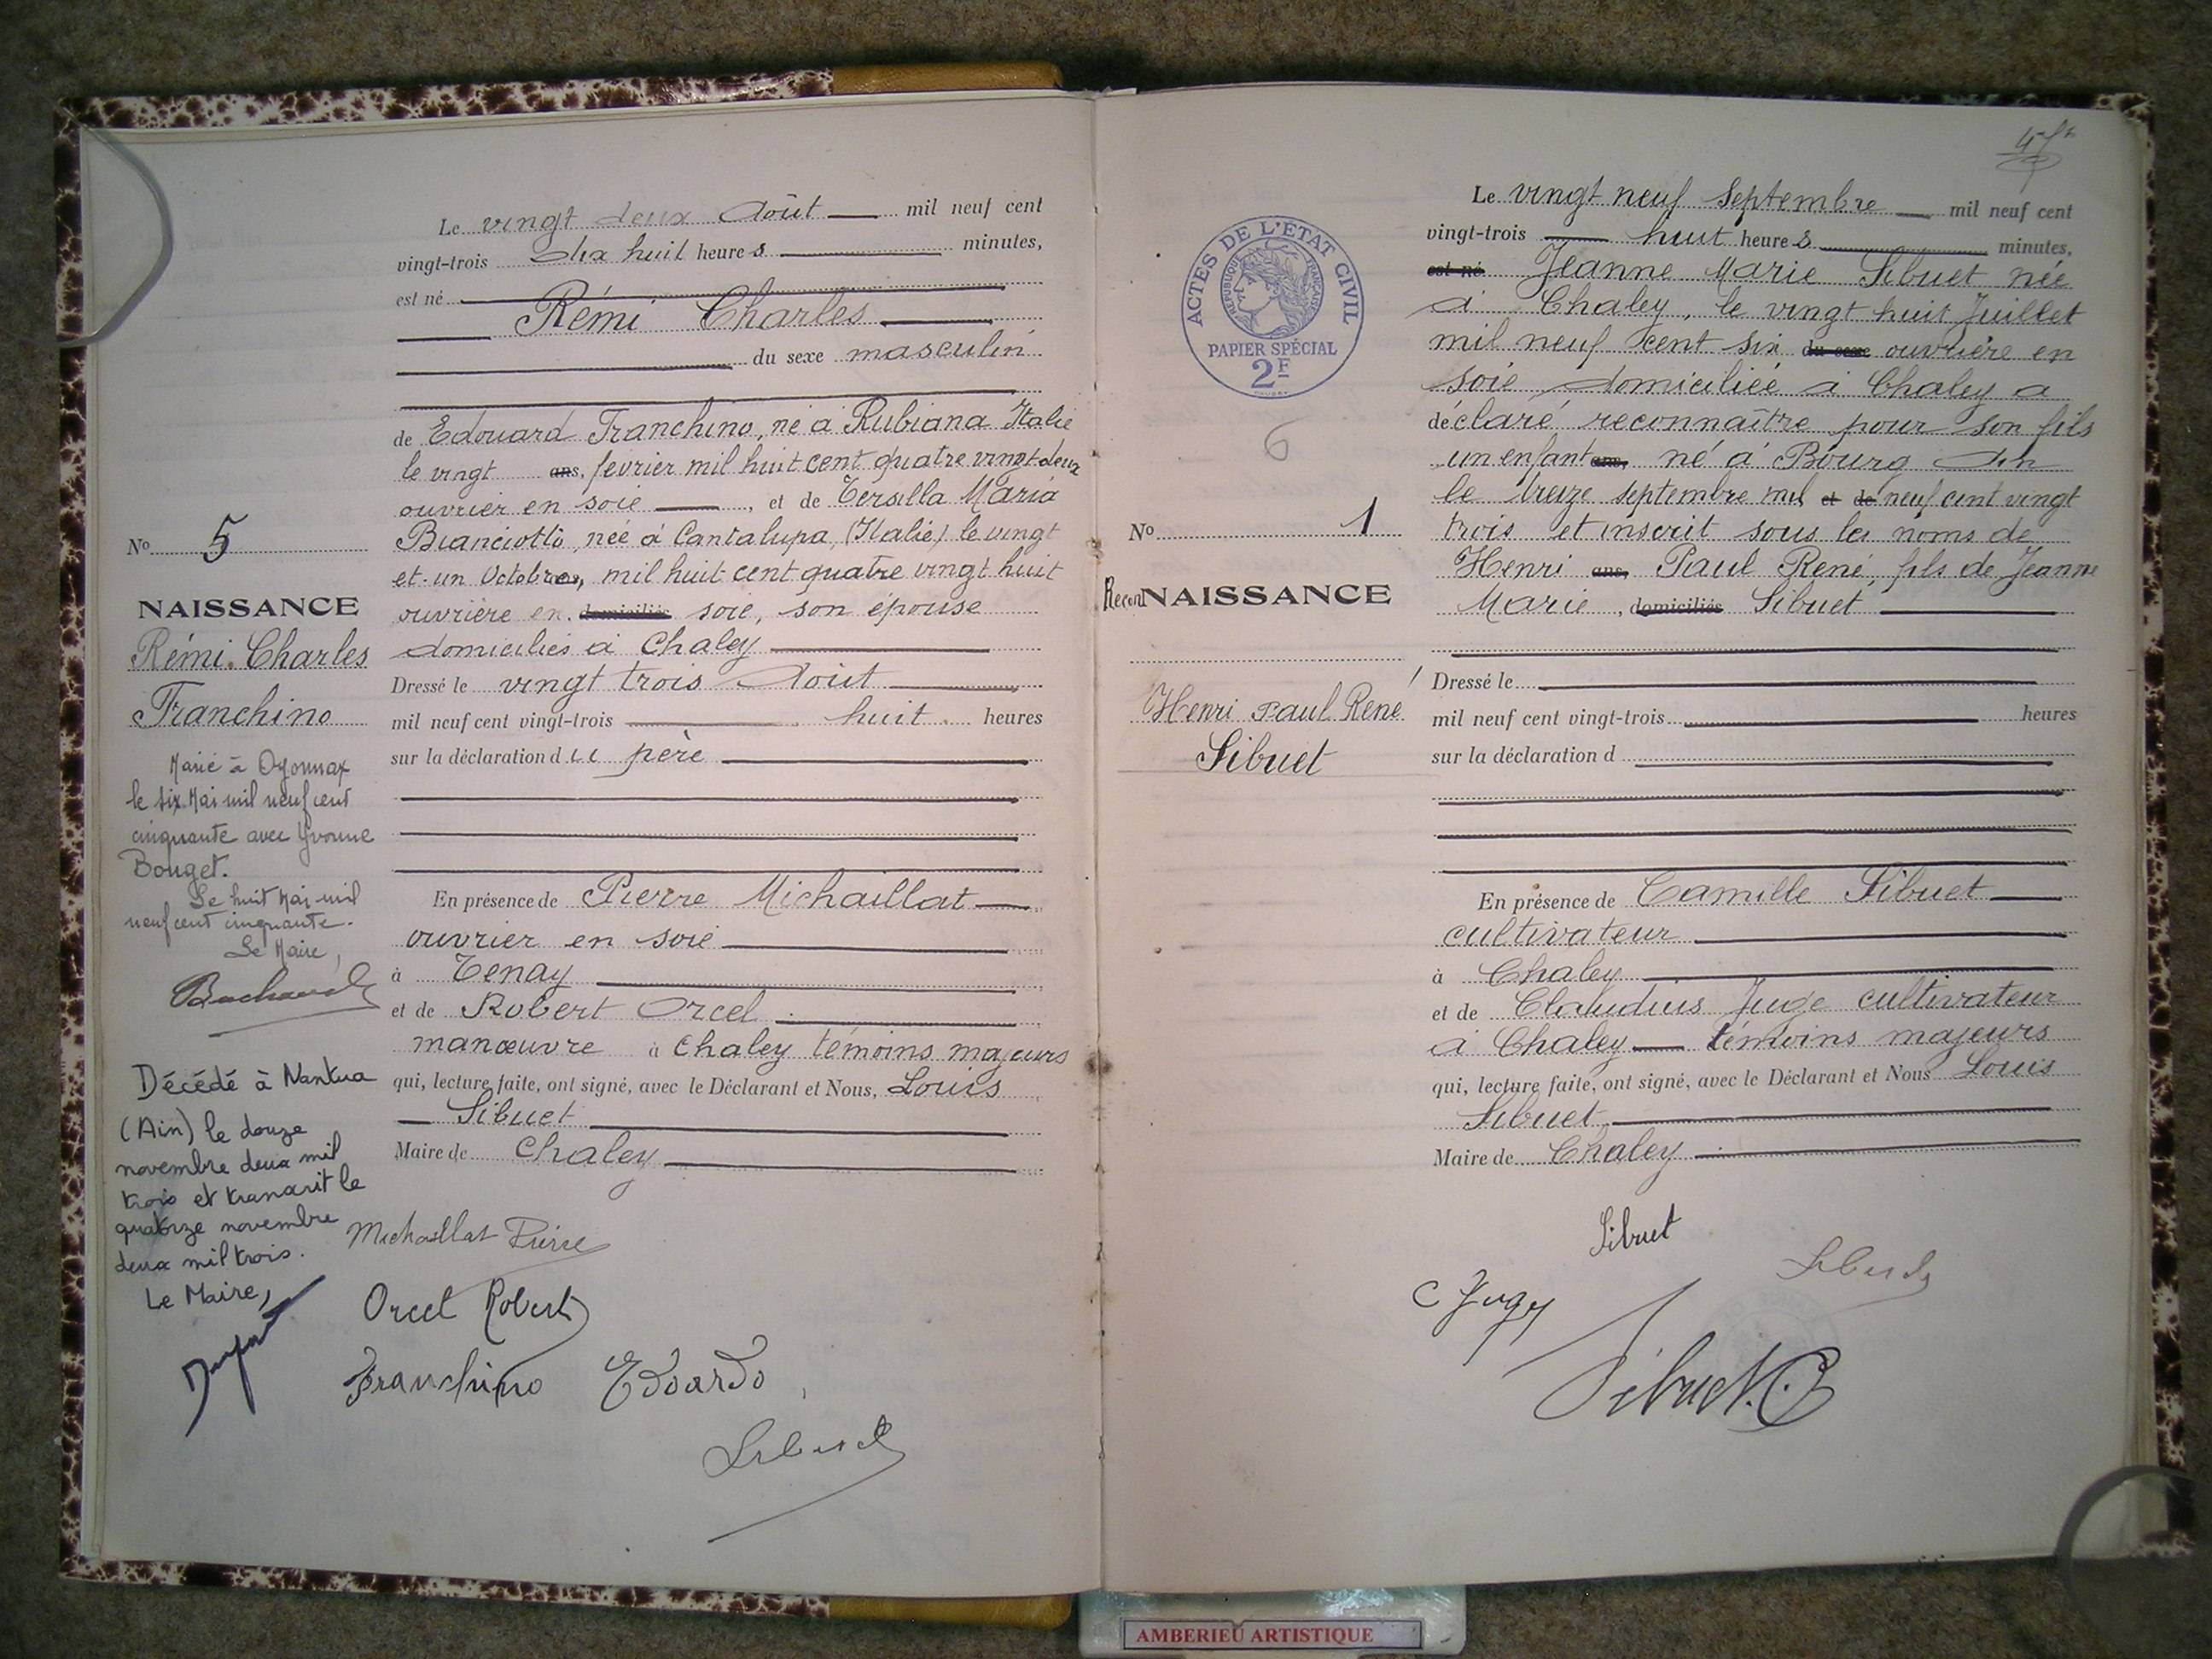 Le vingt deux Août mil neuf cent
vingt-trois dix huit heures minutes,
est né
Rémi Charles
du sexe masculin
de Edouard Franchino, né à Rubiana Italie
le vingt ans, février mil huit cent quatre vingt deux
ouvrier en soie, et de Tersilla Maria
Bianciotto, née à Cantalupa, (Italie) le vingt
et un Octobre, mil huit cent quatre vingt huit
ouvrière en domiciliés soie, son épouse
domiciliés à Chaley
Dressé le vingt trois Août
mil neuf cent vingt-trois huit heures
sur la déclaration du père
En présence de Pierre Michaillat
ouvrier en soie
à Tenay
et de Robert Orcel
manœuvre à Chaley témoins majeurs
qui, lecture faite, ont signé, avec le Déclarant et Nous, Louis
Sibuet
Maire de Chaley
Michaillat Pierre
Orcel Robert
Franchino Edoardo
Sibuet
No 5
NAISSANCE
Rémi Charles
Franchino
Marié à Oyonnax
le six Mai mil neuf cent
cinquante avec Yvonne
Bouget.
Le huit Mai mil
neuf cent cinquante.
Le Maire,
Décédé à Nantua
(Ain) le douze
novembre deux mil
trois et transcrit le
quatorze novembre
deux mil trois.
Le Maire,
Le vingt neuf Septembre mil neuf cent
vingt-trois huit heures minutes,
est né Jeanne Marie Sibuet née
à Chaley, le vingt huit Juillet
mil neuf cent six du sexe ouvrière en
soie domiciliée à Chaley a
déclaré reconnaître pour son fils
un enfant ans, né à Bourg Ain
le treize septembre mil et de neuf cent vingt
trois et inscrit sous les noms de
Henri ans, Paul René, fils de Jeanne
Marie, domiciliés Sibuet
Dressé le
mil neuf cent vingt-trois heures
sur la déclaration d
En présence de Camille Sibuet
cultivateur
à Chaley
et de Claudius Juge cultivateur
à Chaley témoins majeurs
qui, lecture faite, ont signé, avec le Déclarant et Nous Louis
Sibuet
Maire de Chaley
Sibuet
Sibuet
C Juge
Sibuet. C
ACTES DE L'ÉTAT CIVIL
RÉPUBLIQUE FRANÇAISE
PAPIER SPÉCIAL
2F
6
No 1
ReconNAISSANCE
Henri Paul René
Sibuet
AMBERIEU ARTISTIQUE